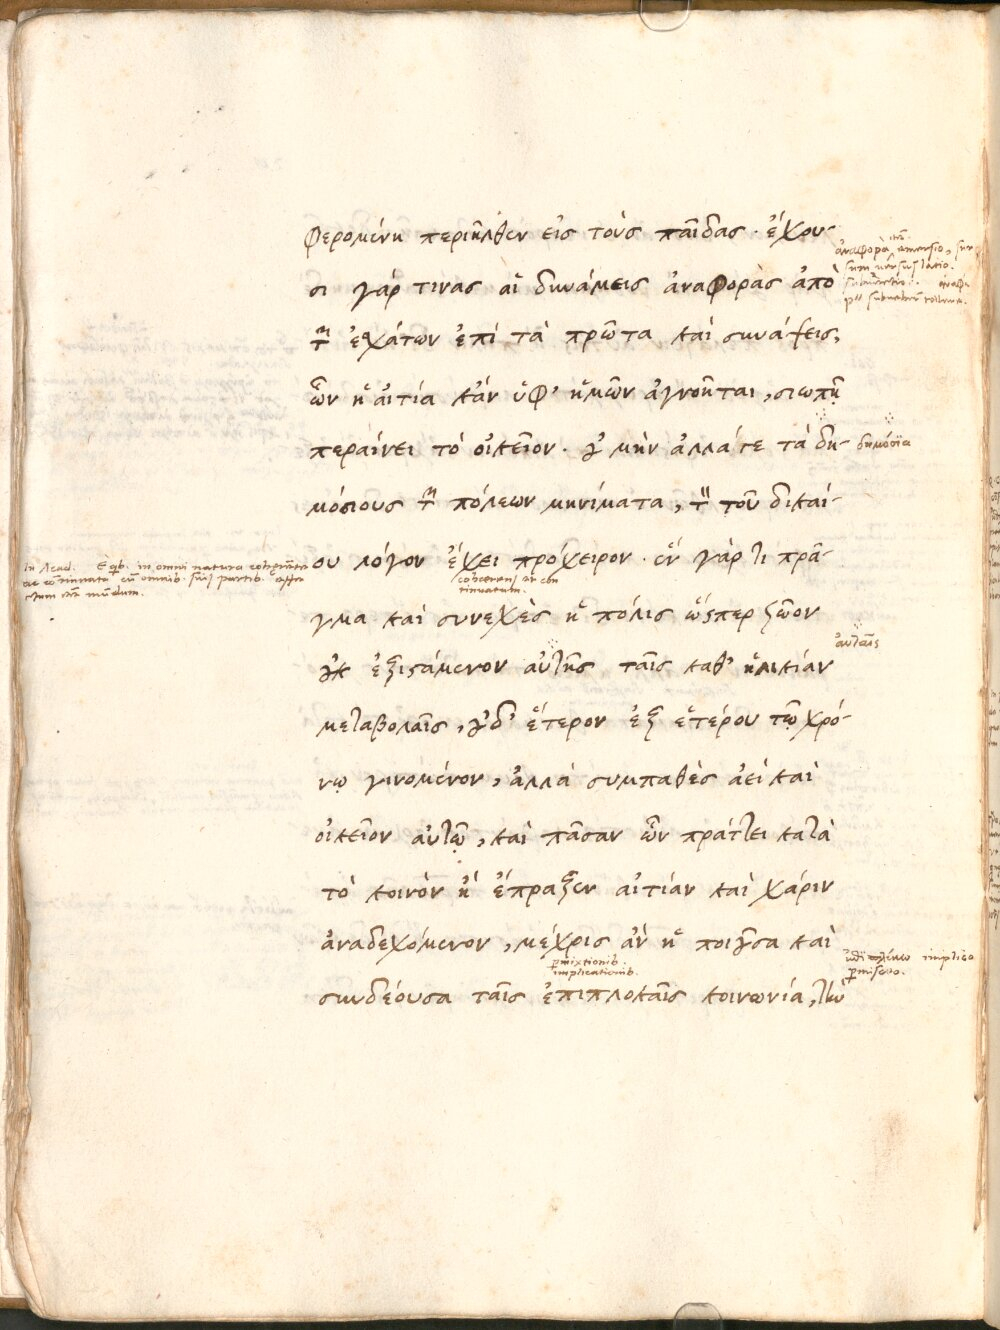 φερομένη περιῆλθεν εἰς τοὺς παῖδας · ἔχου-
σι γάρ τινας αἱ δυνάμεις ἀναφορὰς ἀπὸ
τῶν ἐσχάτων ἐπὶ τὰ πρῶτα καὶ συνάψεις,
ὧν ἡ αἰτία κἂν ὑφ' ἡμῶν ἀγνοῆται, σιωπῇ
περαίνει τὸ οἰκεῖον · οὐ μὴν ἀλλά τε τὰ δη-
μόσιους τῶν πόλεων μηνίματα, τὴν τοῦ δικαί-
ου λόγον ἔχει πρόχειρον · ἓν γάρ τι πρᾶ-
γμα καὶ συνεχὲς ἡ πόλις ὥσπερ ζῶον
οὐκ ἐξιστάμενον αὐτῆς ταῖς καθ' ἡλικίαν
μεταβολαῖς, οὐδ' ἕτερον ἐξ ἑτέρου τῷ χρό-
νῳ γινομένον, ἀλλὰ συμπαθὲς ἀεὶ καὶ
οἰκεῖον αὑτῷ, καὶ πᾶσαν ὧν πράττει κατὰ
τὸ κοινὸν ἢ ἔπραξεν αἰτίαν καὶ χάριν
ἀναδεχόμενον, μέχρις ἂν ἡ ποιοῦσα καὶ
συνδέουσα ταῖς ἐπιπλοκαῖς κοινωνία, τὴν
ἀναφορὰ, emersio, sur
sum versus latio.
δημόσια
in omni natura
cum omnib. suis partib.
mundum.
αὑταῖς
permixtionib.
implicationib.
implico
permisceo.